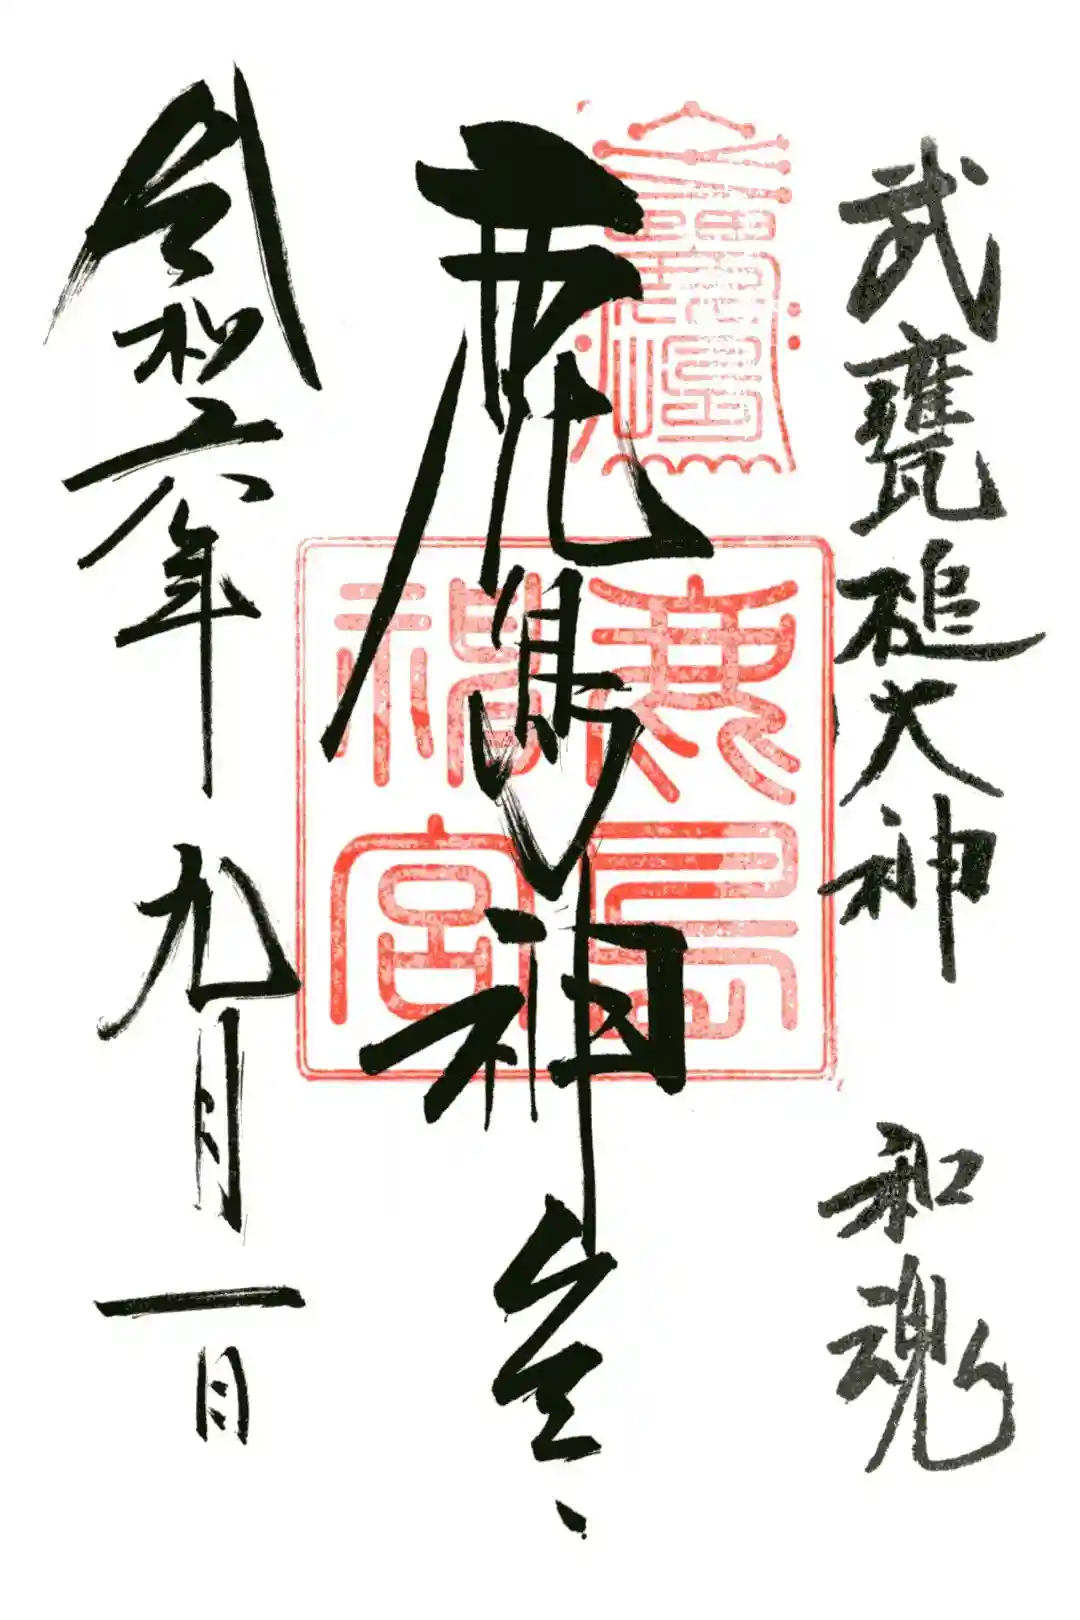 武甕槌大神 和魂
鹿島神宮
令和六年 九月一日
鹿島
神宮